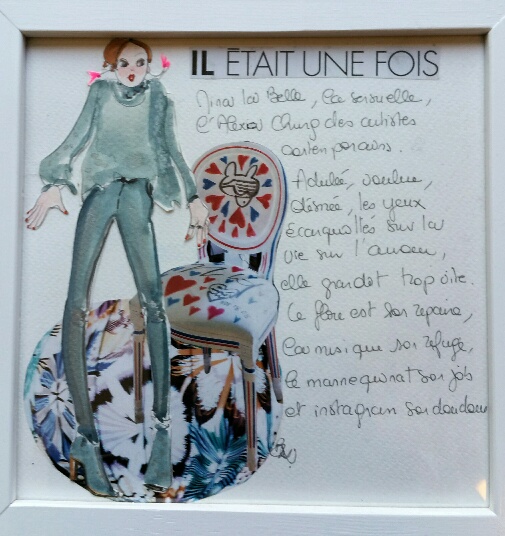 IL ÉTAIT UNE FOIS
la Belle, la sensuelle,
l'Alexa Chung des artistes
contemporains.
Adulée, voulue,
désirée, les yeux
écarquillés sur la
vie sur l'amour,
elle grandit trop vite.
Le flore est son repaire,
La musique son refuge,
le mannequinat son job
et instagram son